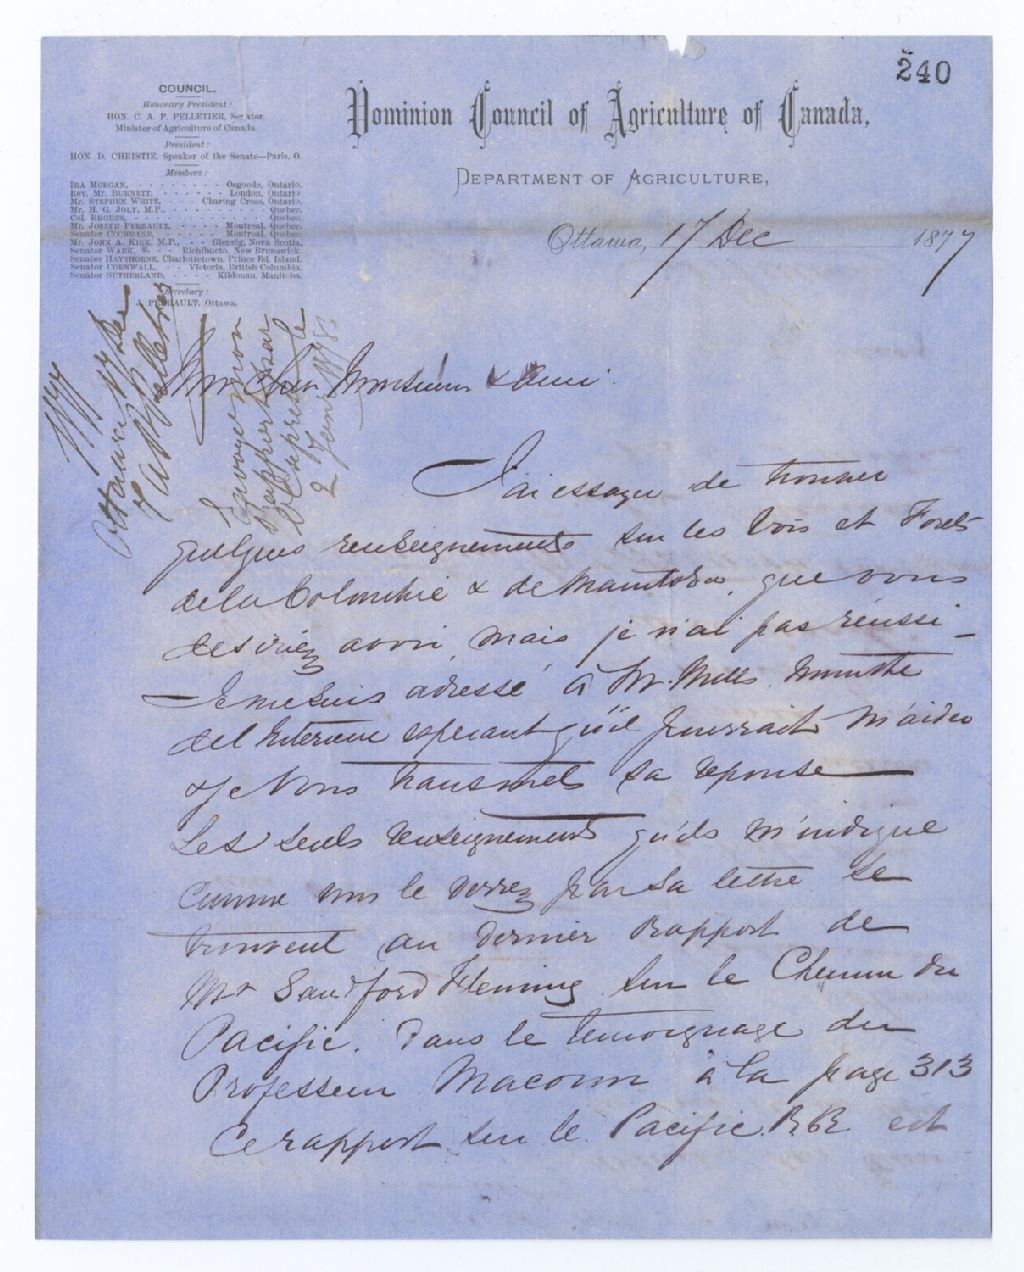 240
COUNCIL.
Honorary President:
HON. C. A. P. PELLETIER, Senator,
Minister of Agriculture of Canada.
President:
HON. D. CHRISTIE, Speaker of the Senate—Paris, O.
Members:
IRA MORGAN, - - - - - - - - - Osgoode, Ontario.
Rev. Mr. BURNETT, - - - - - - London, Ontario.
Mr. STEPHEN WHITE, - - - Charing Cross, Ontario.
Mr. H. G. JOLY, M.P., - - - - - - - - - Quebec.
Col. RHODES, - - - - - - - - - - - - Quebec.
Mr. JOSEPH PERRAULT, - - - - - Montreal, Quebec.
Senator COCHRANE, - - - - - - Montreal, Quebec.
Mr. JOHN A. KIRK, M.P., - - Glenelg, Nova Scotia.
Senator WARK, - - Richibucto, New Brunswick.
Senator HAYTHORNE, Charlottetown, Prince Ed. Island.
Senator CORNWALL, - - Victoria, British Columbia.
Senator SUTHERLAND, - - - - Kildonan, Manitoba.
Secretary:
J. PERRAULT, Ottawa.
Dominion Council of Agriculture of Canada,
DEPARTMENT OF AGRICULTURE,
Ottawa, 17 Dec 1877
1877
Ottawa 17 Dec
Pelletier
Envoyé mon
Rapport par
l'Express le
2 Janv 1878.
Mon Cher Monsieur & ami
J'ai essayé de trouver
quelques renseignements sur les bois et Forets
de la Colombie & de Manitoba, que vous
desiriez avoir, mais je n'ai pas réussi –
Je me suis adressé à Mr. Mills ministre
de l'Interieur esperant qu'il pourrait m'aider
& je vous transmets sa reponse —
Les seuls renseignements qu'ils m'indique
comme vous le verrez par sa lettre se
trouvent au dernier Rapport de
Mr Sandford Fleming sur le Chemin du
Pacific. Dans le temoignage du
Professeur Macoun à la page 313
Ce rapport sur le Pacific R.R. est